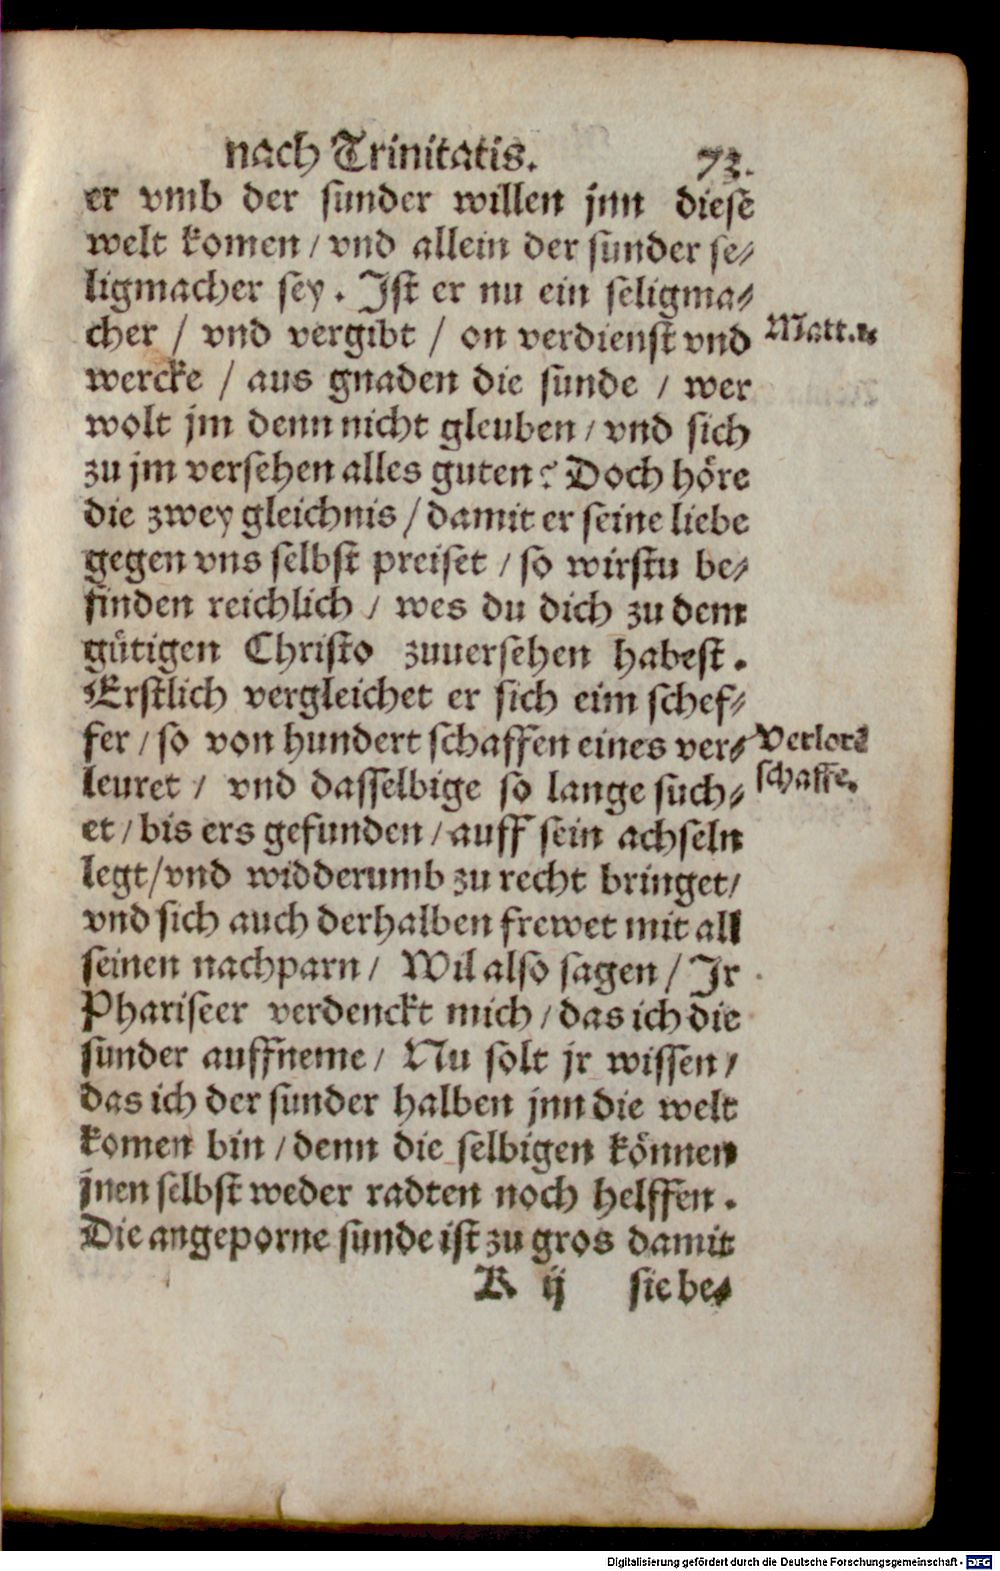 nach Trinitatis. 73.
er vmb der sunder willen jnn diese
welt komen / vnd allein der sunder se⸗
ligmacher sey. Ist er nu ein seligma⸗
cher / vnd vergibt / on verdienst vnd
Matt.
wercke / aus gnaden die sunde / wer
wolt jm denn nicht gleuben / vnd sich
zu jm versehen alles guten? Doch höre
die zwey gleichnis / damit er seine liebe
gegen vns selbst preiset / so wirstu be⸗
finden reichlich / wes du dich zu dem
gütigen Christo zuuersehen habest.
Erstlich vergleichet er sich eim schef⸗
fer / so von hundert schaffen eines ver⸗
Verlorē
leuret / vnd dasselbige so lange such⸗
schaffe.
et / bis ers gefunden / auff sein achseln
legt / vnd widderumb zu recht bringet /
vnd sich auch derhalben frewet mit all
seinen nachparn / Wil also sagen / Jr
Phariseer verdenckt mich / das ich die
sunder auffneme / Nu solt jr wissen /
das ich der sunder halben jnn die welt
komen bin / denn die selbigen können
jnen selbst weder radten noch helffen.
Die angeporne sunde ist zu gros damit
K ij sie be⸗
Digitalisierung gefördert durch die Deutsche Forschungsgemeinschaft - DFG